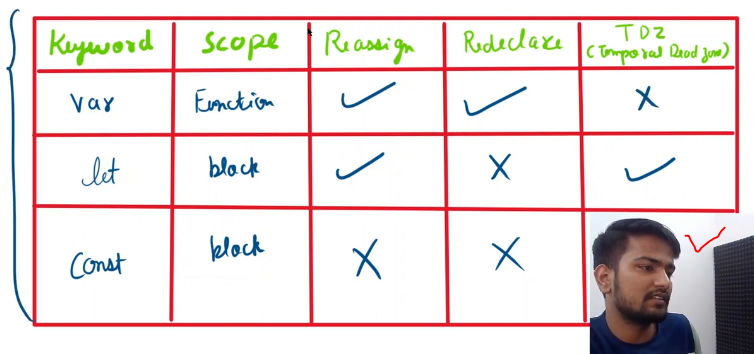 Keyword Scope Reassign Redeclare TDZ
(Temporal Dead zone)
var Function ✓ ✓ X
let block ✓ X ✓
Const block X X ✓